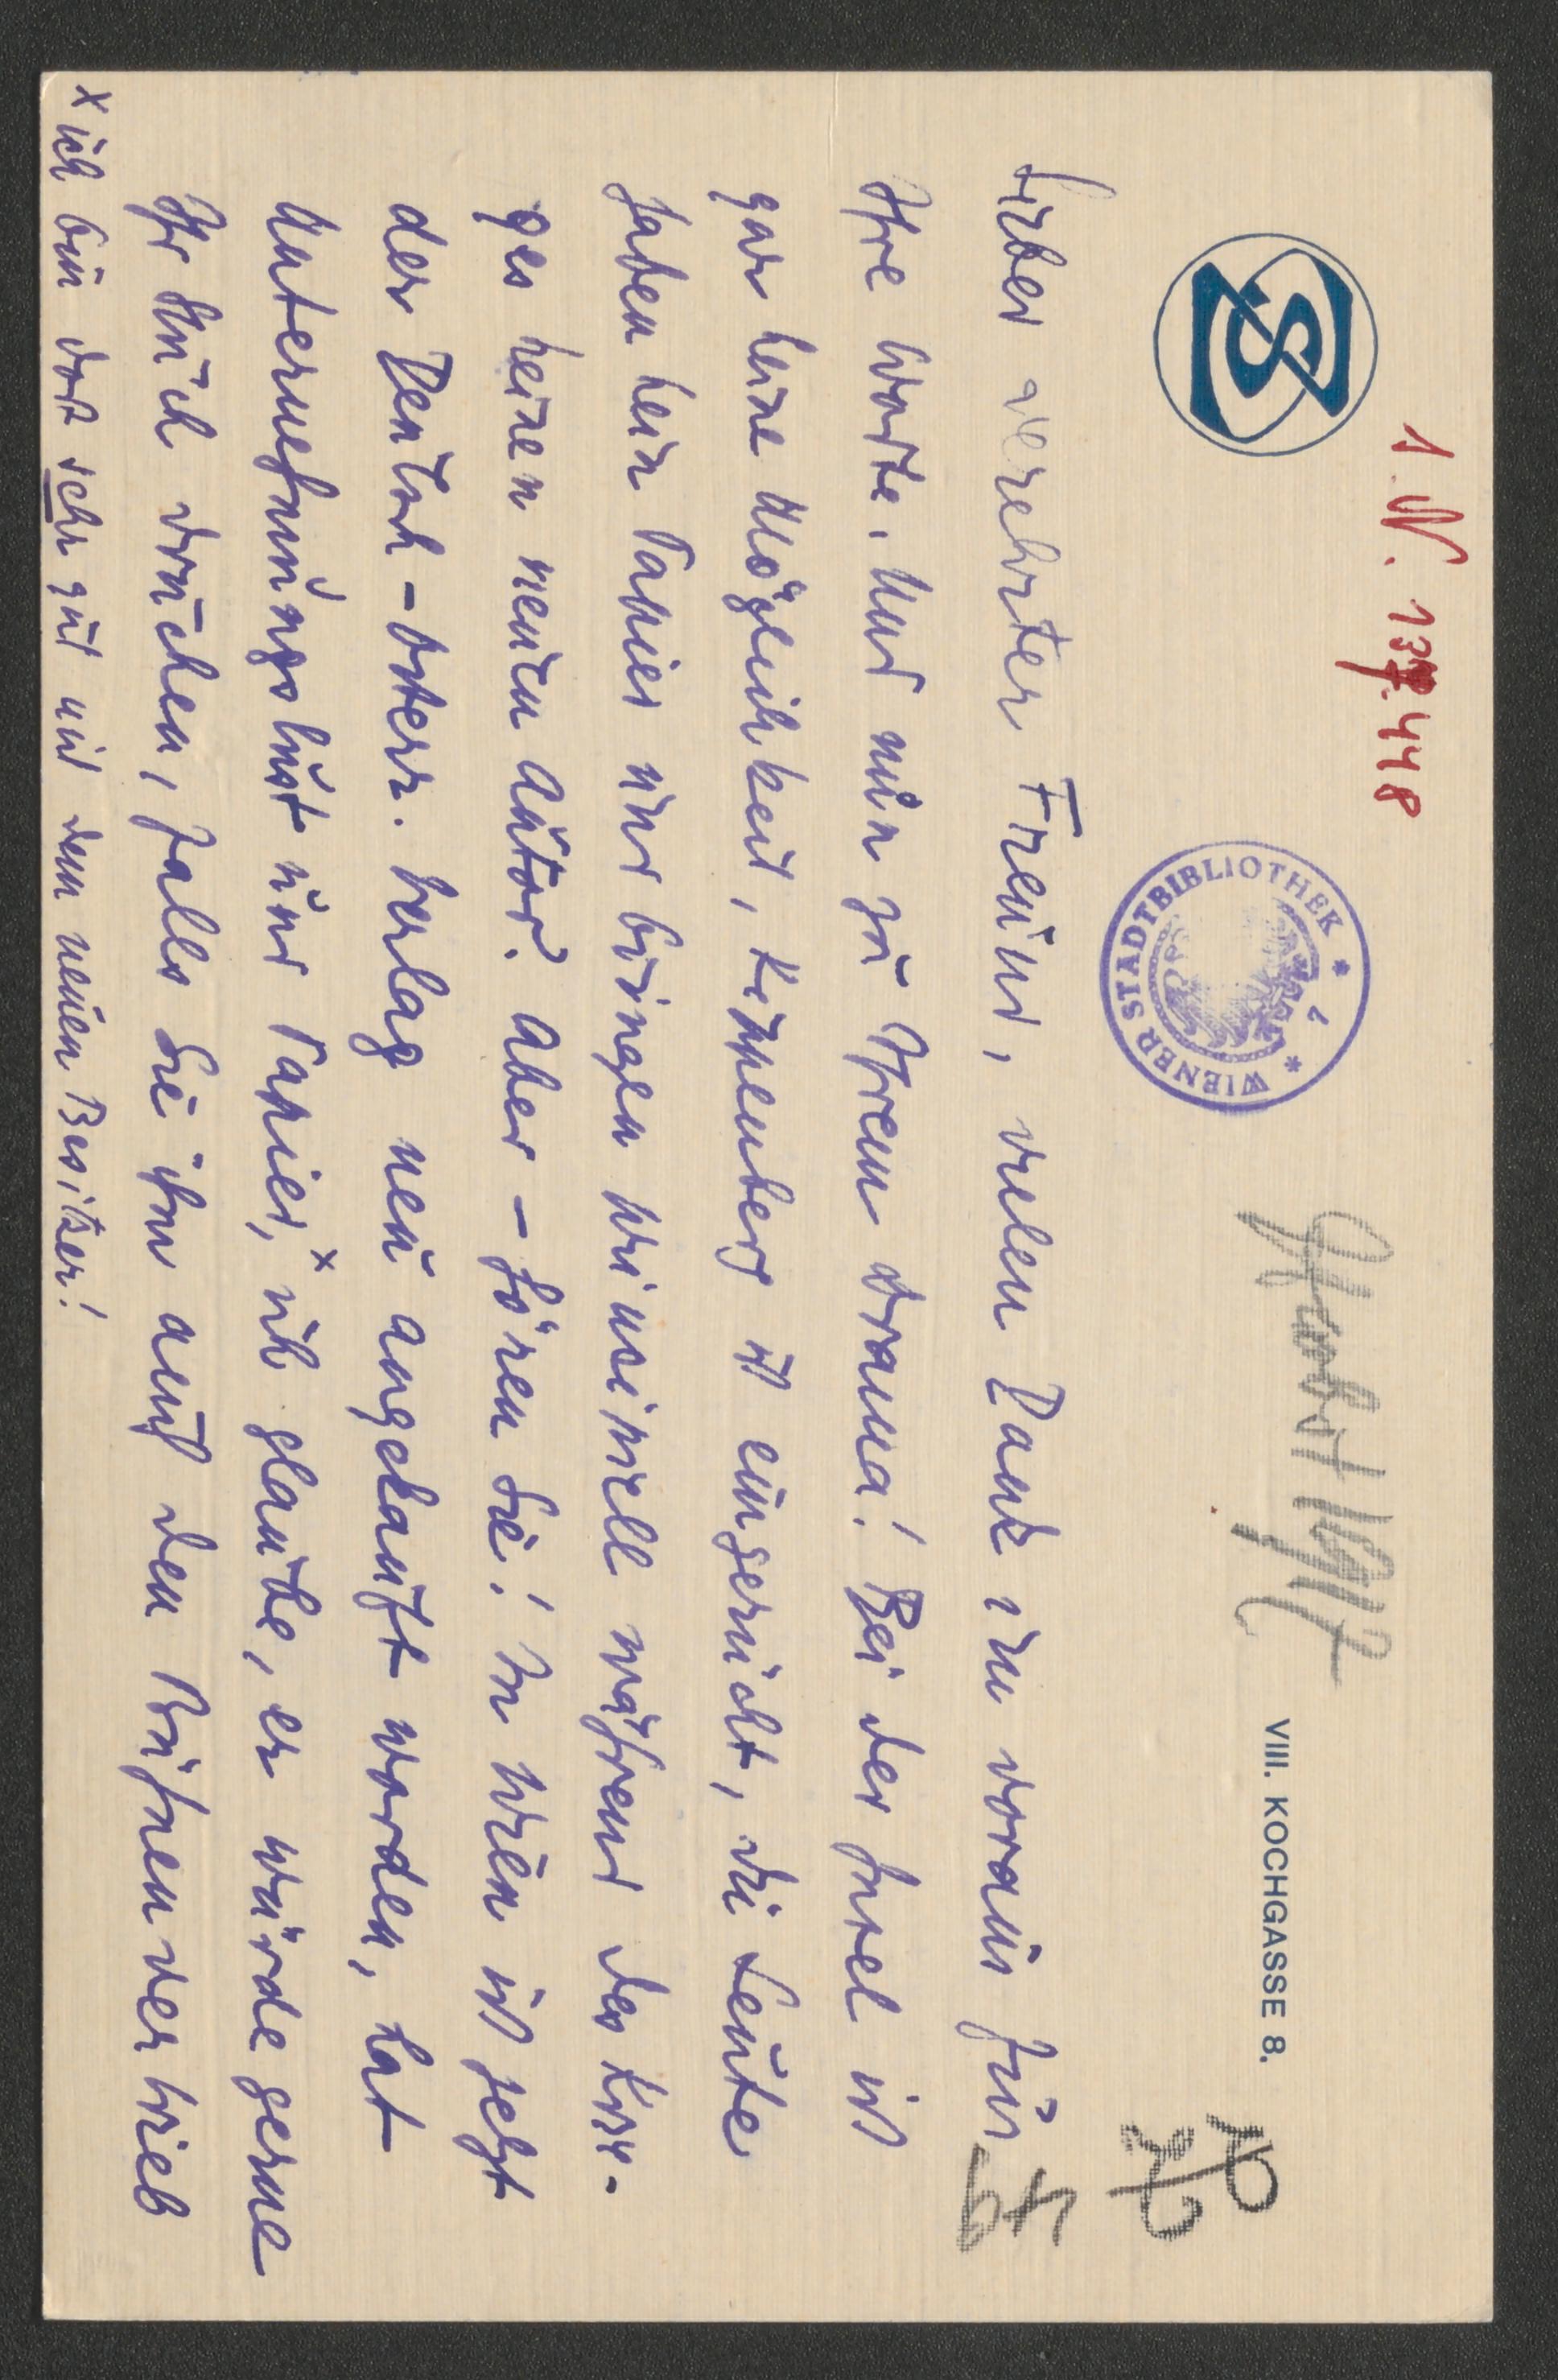 I.N. 137.448
SZ
WIENER STADTBIBLIOTHEK
VIII. KOCHGASSE 8.
Lieber verehrter Freund, vielen Dank im voraus für
Ihre Worte. Und nun zu Ihrem Drama! Bei der Insel ist
gar keine Möglichkeit, Kippenberg ist eingerückt, die Leute
haben kein Papier und bringen prinzipiell während des Krie-
ges keinen neuen Autor. Aber – hören Sie! In Wien ist jetzt
der Deutsch-Österr. Verlag neu angekauft worden, hat
Unternehmungslust und Papier,ˣ ich glaube, er würde gerne
Ihr Stück drucken, falls Sie ihm auch den Bühnenvertrieb
x ich bin dort sehr gut mit dem neuen Besitzer!